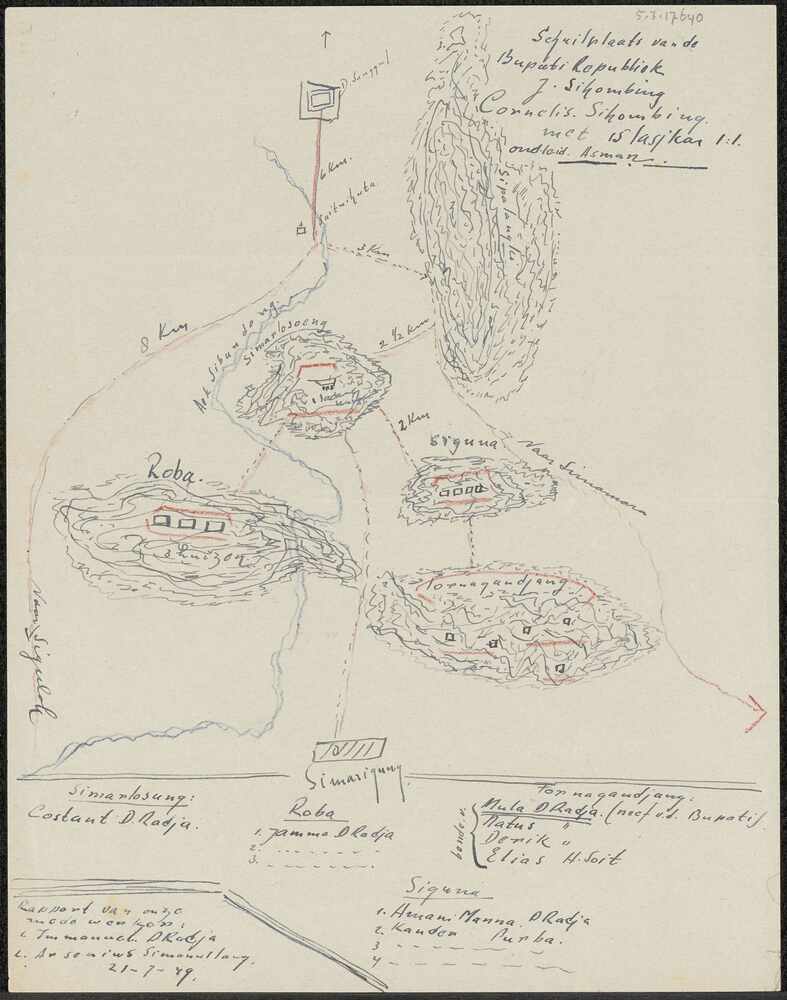 5.3.17640
Schuilplaats van de
Bupati Republiek
J. Sihombing
Cornelis. Sihombing.
met 15 lasjkar 1:1.
ondleid. Asman.
6 Km.
3 Km
8 Km
Aek Sibundong.
Simarlosoeng
2 1/2 Km
2 Km
Siguna
Naar Sinamara
Roba.
huizen
Tornagandjang
Naar Sigulok
Simarigung
Simarlosung:
Costant D. Radja.
Roba
1. Jamma D Radja
2. - - - - - - -
3. - - - - - -
Tornagandjang:
bende v.
Mula D Radja. (neef v.d. Bupati)
Natus "
Derik "
Elias H. Soit
Siguna
1. Amani Manna. D Radja
2. Kanden Purba.
3 - - - - - - -
4 - - - - - - -
Rapport van onze
mede werkers:
1. Immanuel. D Radja
2. Arsenius Simanullang.
21-7-49.